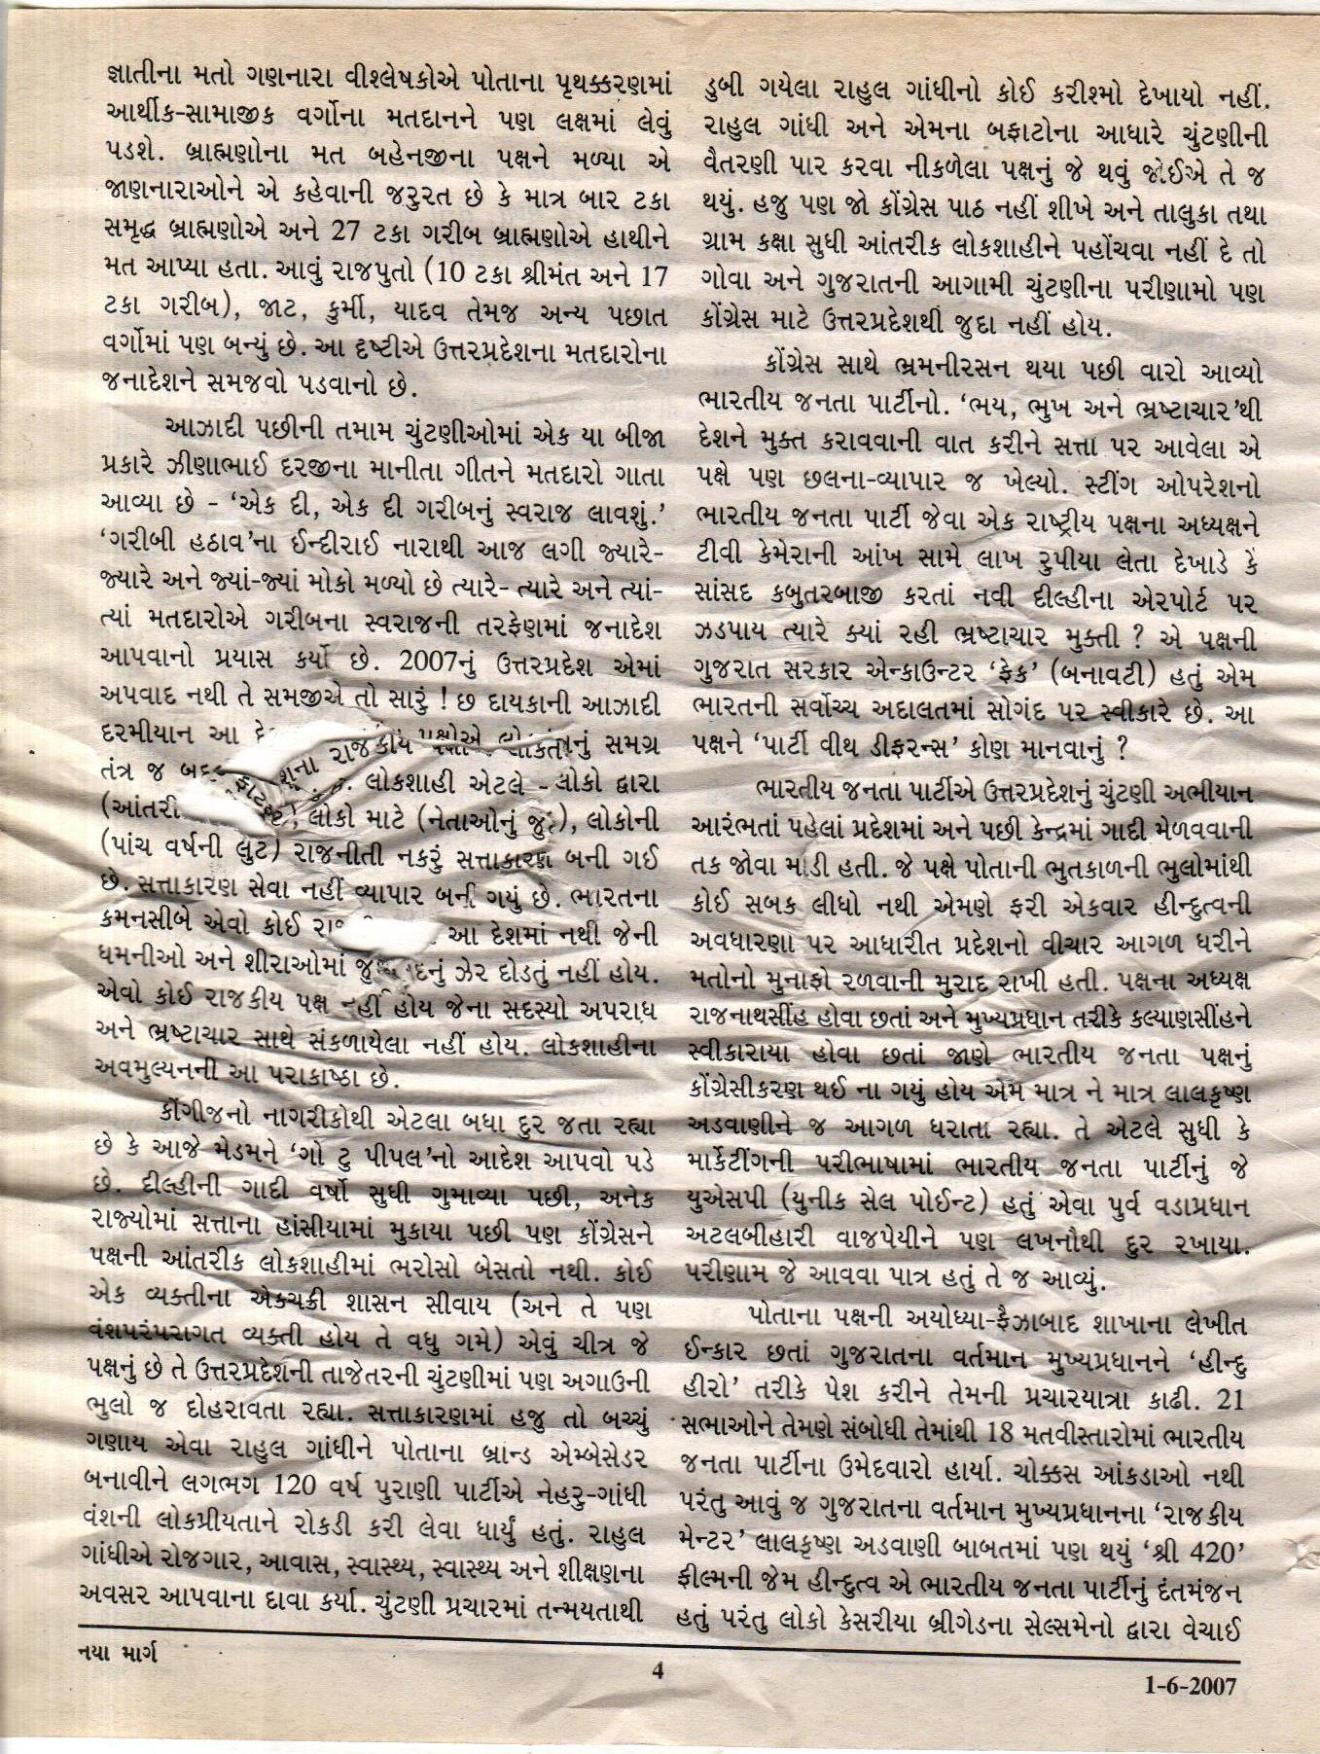 જ્ઞાતીના મતો ગણનારા વીશ્લેષકોએ પોતાના પૃથક્કરણમાં
આર્થીક-સામાજીક વર્ગોના મતદાનને પણ લક્ષમાં લેવું
પડશે. બ્રાહ્મણોના મત બહેનજીના પક્ષને મળ્યા એ
જાણનારાઓને એ કહેવાની જરુરત છે કે માત્ર બાર ટકા
સમૃદ્ધ બ્રાહ્મણોએ અને 27 ટકા ગરીબ બ્રાહ્મણોએ હાથીને
મત આપ્યા હતા. આવું રાજપુતો (10 ટકા શ્રીમંત અને 17
ટકા ગરીબ), જાટ, કુર્મી, યાદવ તેમજ અન્ય પછાત
વર્ગોમાં પણ બન્યું છે. આ દૃષ્ટીએ ઉત્તરપ્રદેશના મતદારોના
જનાદેશને સમજવો પડવાનો છે.
આઝાદી પછીની તમામ ચુંટણીઓમાં એક યા બીજા
પ્રકારે ઝીણાભાઈ દરજીના માનીતા ગીતને મતદારો ગાતા
આવ્યા છે - 'એક દી, એક દી ગરીબનું સ્વરાજ લાવશું.'
'ગરીબી હઠાવ'ના ઈન્દીરાઈ નારાથી આજ લગી જ્યારે-
જ્યારે અને જ્યાં-જ્યાં મોકો મળ્યો છે ત્યારે- ત્યારે અને ત્યાં-
ત્યાં મતદારોએ ગરીબના સ્વરાજની તરફેણમાં જનાદેશ
આપવાનો પ્રયાસ કર્યો છે. 2007નું ઉત્તરપ્રદેશ એમાં
અપવાદ નથી તે સમજીએ તો સારું ! છ દાયકાની આઝાદી
દરમીયાન આ રાજકીય પક્ષોએ સમગ્ર
તંત્ર જ લોકશાહી એટલે - લોકો દ્વારા
લોકો માટે (નેતાઓનું જુઠ), લોકોની
(પાંચ વર્ષની લુંટ) રાજનીતી નકરું સત્તાકારણ બની ગઈ
છે. સત્તાકારણ સેવા નહીં વ્યાપાર બની ગયું છે. ભારતના
કમનસીબે એવો કોઈ આ દેશમાં નથી જેની
ધમનીઓ અને શીરાઓમાં ઝેર દોડતું નહીં હોય.
એવો કોઈ રાજકીય પક્ષ નહીં હોય જેના સદસ્યો અપરાધ
અને ભ્રષ્ટાચાર સાથે સંકળાયેલા નહીં હોય. લોકશાહીના
અવમુલ્યનની આ પરાકાષ્ઠા છે.
કોંગીજનો નાગરીકોથી એટલા બધા દુર જતા રહ્યા
છે કે આજે મેડમને 'ગો ટુ પીપલ'નો આદેશ આપવો પડે
છે. દીલ્હીની ગાદી વર્ષો સુધી ગુમાવ્યા પછી, અનેક
રાજ્યોમાં સત્તાના હાંસીયામાં મુકાયા પછી પણ કોંગ્રેસને
પક્ષની આંતરીક લોકશાહીમાં ભરોસો બેસતો નથી. કોઈ
એક વ્યક્તીના એકચક્રી શાસન સીવાય (અને તે પણ
વંશપરંપરાગત વ્યક્તી હોય તે વધુ ગમે) એવું ચીત્ર જે
પક્ષનું છે તે ઉત્તરપ્રદેશની તાજેતરની ચુંટણીમાં પણ અગાઉની
ભુલો જ દોહરાવતા રહ્યા. સત્તાકારણમાં હજુ તો બચ્ચું
ગણાય એવા રાહુલ ગાંધીને પોતાના બ્રાન્ડ એમ્બેસેડર
બનાવીને લગભગ 120 વર્ષ પુરાણી પાર્ટીએ નેહરુ-ગાંધી
વંશની લોકપ્રીયતાને રોકડી કરી લેવા ધાર્યું હતું. રાહુલ
ગાંધીએ રોજગાર, આવાસ, સ્વાસ્થ્ય, સ્વાસ્થ્ય અને શીક્ષણના
અવસર આપવાના દાવા કર્યા. ચુંટણી પ્રચારમાં તન્મયતાથી
ડુબી ગયેલા રાહુલ ગાંધીનો કોઈ કરીશ્મો દેખાયો નહીં.
રાહુલ ગાંધી અને એમના બફાટોના આધારે ચુંટણીની
વૈતરણી પાર કરવા નીકળેલા પક્ષનું જે થવું જોઈએ તે જ
થયું. હજુ પણ જો કોંગ્રેસ પાઠ નહીં શીખે અને તાલુકા તથા
ગ્રામ કક્ષા સુધી આંતરીક લોકશાહીને પહોંચવા નહીં દે તો
ગોવા અને ગુજરાતની આગામી ચુંટણીના પરીણામો પણ
કોંગ્રેસ માટે ઉત્તરપ્રદેશથી જુદા નહીં હોય.
કોંગ્રેસ સાથે ભ્રમનીરસન થયા પછી વારો આવ્યો
ભારતીય જનતા પાર્ટીનો. 'ભય, ભુખ અને ભ્રષ્ટાચાર'થી
દેશને મુક્ત કરાવવાની વાત કરીને સત્તા પર આવેલા એ
પક્ષે પણ છલના-વ્યાપાર જ ખેલ્યો. સ્ટીંગ ઓપરેશનો
ભારતીય જનતા પાર્ટી જેવા એક રાષ્ટ્રીય પક્ષના અધ્યક્ષને
ટીવી કેમેરાની આંખ સામે લાખ રુપીયા લેતા દેખાડે કે
સાંસદ કબુતરબાજી કરતાં નવી દીલ્હીના એરપોર્ટ પર
ઝડપાય ત્યારે ક્યાં રહી ભ્રષ્ટાચાર મુક્તી ? એ પક્ષની
ગુજરાત સરકાર એન્કાઉન્ટર 'ફેક' (બનાવટી) હતું એમ
ભારતની સર્વોચ્ચ અદાલતમાં સોગંદ પર સ્વીકારે છે. આ
પક્ષને 'પાર્ટી વીથ ડીફરન્સ' કોણ માનવાનું ?
ભારતીય જનતા પાર્ટીએ ઉત્તરપ્રદેશનું ચુંટણી અભીયાન
આરંભતાં પહેલાં પ્રદેશમાં અને પછી કેન્દ્રમાં ગાદી મેળવવાની
તક જોવા માંડી હતી. જે પક્ષે પોતાની ભુતકાળની ભુલોમાંથી
કોઈ સબક લીધો નથી એમણે ફરી એકવાર હીન્દુત્વની
અવધારણા પર આધારીત પ્રદેશનો વીચાર આગળ ધરીને
મતોનો મુનાફો રળવાની મુરાદ રાખી હતી. પક્ષના અધ્યક્ષ
રાજનાથસીંહ હોવા છતાં અને મુખ્યપ્રધાન તરીકે કલ્યાણસીંહને
સ્વીકારાયા હોવા છતાં જાણે ભારતીય જનતા પક્ષનું
કોંગ્રેસીકરણ થઈ ના ગયું હોય એમ માત્ર ને માત્ર લાલકૃષ્ણ
અડવાણીને જ આગળ ધરાતા રહ્યા. તે એટલે સુધી કે
માર્કેટીંગની પરીભાષામાં ભારતીય જનતા પાર્ટીનું જે
યુએસપી (યુનીક સેલ પોઈન્ટ) હતું એવા પુર્વ વડાપ્રધાન
અટલબીહારી વાજપેયીને પણ લખનૌથી દુર રખાયા.
પરીણામ જે આવવા પાત્ર હતું તે જ આવ્યું.
પોતાના પક્ષની અયોધ્યા-ફૈઝાબાદ શાખાના લેખીત
ઈન્કાર છતાં ગુજરાતના વર્તમાન મુખ્યપ્રધાનને 'હીન્દુ
હીરો' તરીકે પેશ કરીને તેમની પ્રચારયાત્રા કાઢી. 21
સભાઓને તેમણે સંબોધી તેમાંથી 18 મતવીસ્તારોમાં ભારતીય
જનતા પાર્ટીના ઉમેદવારો હાર્યા. ચોક્કસ આંકડાઓ નથી
પરંતુ આવું જ ગુજરાતના વર્તમાન મુખ્યપ્રધાનના 'રાજકીય
મેન્ટર' લાલકૃષ્ણ અડવાણી બાબતમાં પણ થયું 'શ્રી 420'
ફીલ્મની જેમ હીન્દુત્વ એ ભારતીય જનતા પાર્ટીનું દંતમંજન
હતું પરંતુ લોકો કેસરીયા બ્રીગેડના સેલ્સમેનો દ્વારા વેચાઈ
નયા માર્ગ
4
1-6-2007